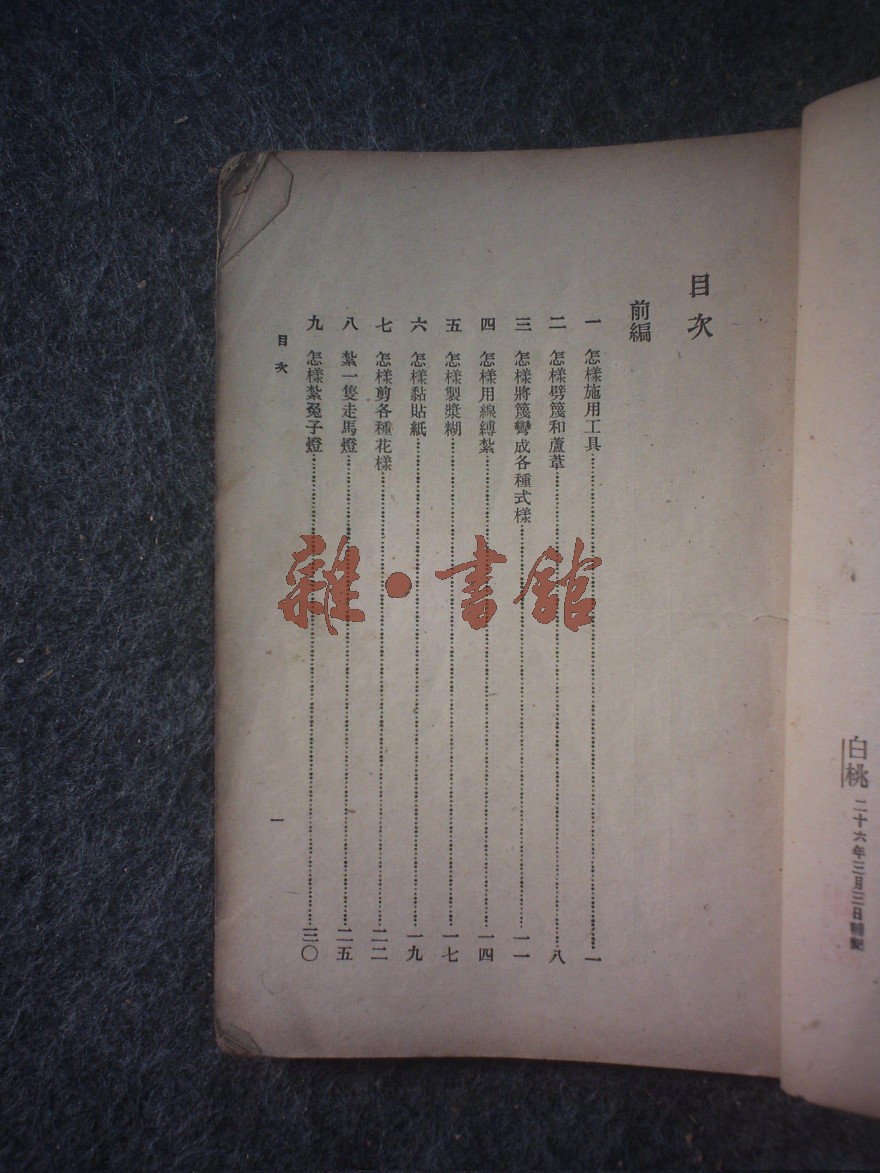 白桃 二十六年三月三日
目次
前編
一 怎樣施用工具 一
二 怎樣劈篾和蘆葦 八
三 怎樣將篾彎成各種式樣 一一
四 怎樣用線縛紮 一四
五 怎樣製漿糊 一七
六 怎樣黏貼紙 一九
七 怎樣剪各種花樣 二二
八 紮一隻走馬燈 二五
九 怎樣紮兔子燈 三〇
目次
一
雜·書館